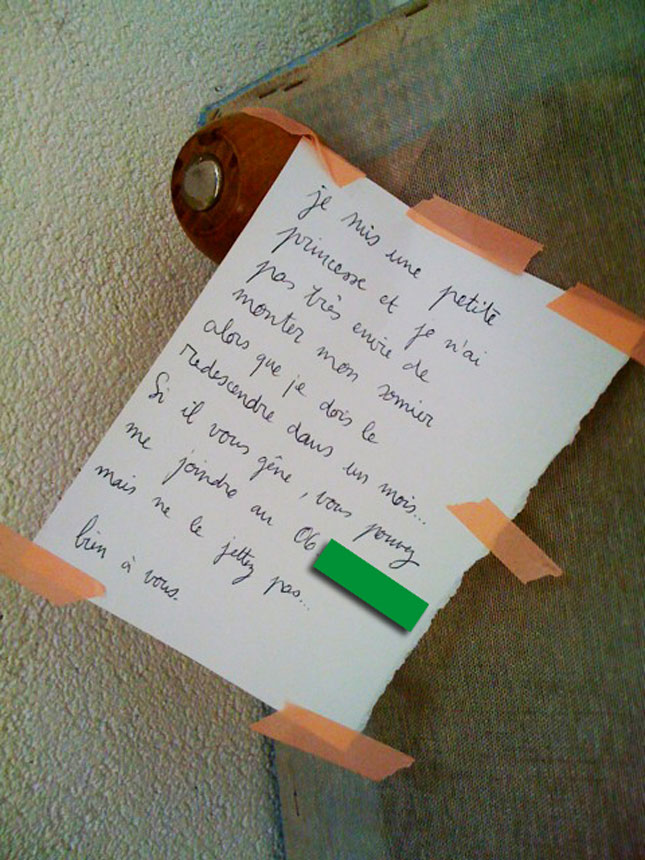 je suis une petite
princesse et je n'ai
pas très envie de
monter mon somier
alors que je dois le
redescendre dans un mois...
Si il vous gêne, vous pouvez
me joindre au 06
mais ne le jettez pas...
bien à vous.